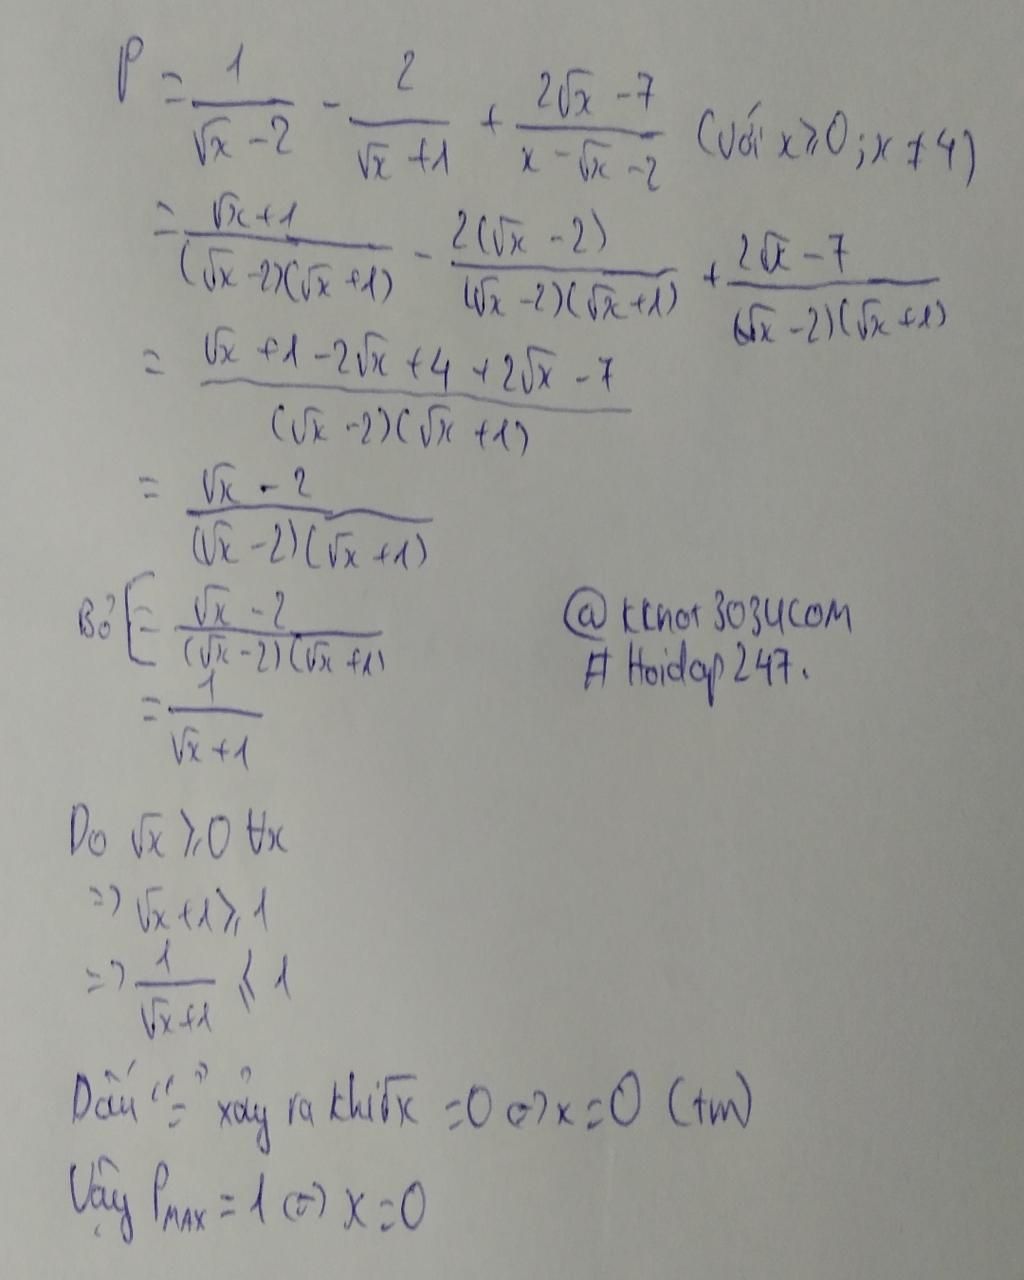 P = \frac{1}{\sqrt{x} - 2} - \frac{2}{\sqrt{x} + 1} + \frac{2\sqrt{x} - 7}{x - \sqrt{x} - 2} (với x ≥ 0 ; x ≠ 4)
= \frac{\sqrt{x} + 1}{(\sqrt{x} - 2)(\sqrt{x} + 1)} - \frac{2(\sqrt{x} - 2)}{(\sqrt{x} - 2)(\sqrt{x} + 1)} + \frac{2\sqrt{x} - 7}{(\sqrt{x} - 2)(\sqrt{x} + 1)}
= \frac{\sqrt{x} + 1 - 2\sqrt{x} + 4 + 2\sqrt{x} - 7}{(\sqrt{x} - 2)(\sqrt{x} + 1)}
= \frac{\sqrt{x} - 2}{(\sqrt{x} - 2)(\sqrt{x} + 1)}
Bỏ [= \frac{\sqrt{x} - 2}{(\sqrt{x} - 2)(\sqrt{x} + 1)}
@
# Hoidap247.
= \frac{1}{\sqrt{x} + 1}
Do \sqrt{x} ≥ 0 ∀x
=> \sqrt{x} + 1 ≥ 1
=> \frac{1}{\sqrt{x} + 1} ≤ 1
Dấu "=" xảy ra khi \sqrt{x} = 0 <=> x = 0 (tm)
Vậy P_{MAX} = 1 <=> x = 0